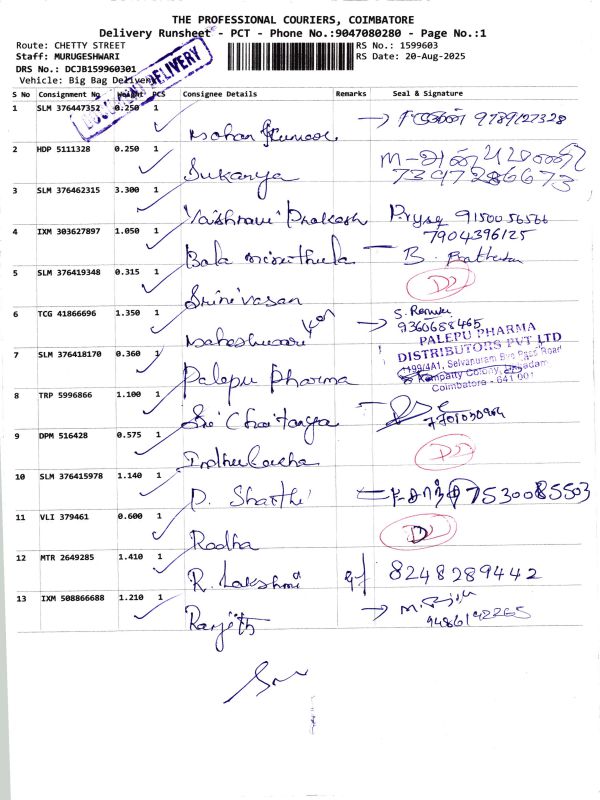 THE PROFESSIONAL COURIERS, COIMBATORE
Delivery Runsheet - PCT - Phone No.:9047080280 - Page No.:1
Route: CHETTY STREET
RS No.: 1599603
Staff: MURUGESHWARI
RS Date: 20-Aug-2025
DRS No.: DCJB159960301
Vehicle: Big Bag Delivery
DELIVERY
S No Consignment No Weight PCS Consignee Details Remarks Seal & Signature
1 SLM 376447352 0.250 1 Mohan Kumar 9789127328
2 HDP 5111328 0.250 1 Sukanya 7397286673
3 SLM 376462315 3.300 1 Vaishnavi Prakash 9150056566
4 IXM 303627897 1.050 1 Bala 7904396125
B.
5 SLM 376419348 0.315 1 Srinivasan
6 TCG 41866696 1.350 1 Maheshwari S. Renuka
9360688465
7 SLM 376418170 0.360 1 Palepu Pharma PALEPU PHARMA
DISTRIBUTORS PVT LTD
1199/4A1, Selvanuram Bye Pass Road
Coimbatore - 641 001
8 TRP 5996866 1.100 1 Sri Chaitanya
9 DPM 516428 0.575 1
10 SLM 376415978 1.140 1 D. Sharthi 7530085503
11 VLI 379461 0.600 1 Radha
12 MTR 2649285 1.410 1 R. Lakshmi 8248289442
13 IXM 508866688 1.210 1 Ranjith